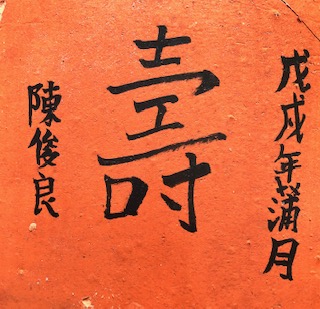 戊戌年蒲月
壽
陳俊良